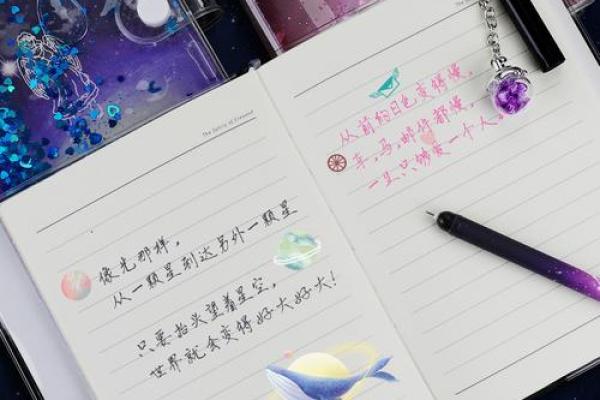 像光那样，
从一颗星到达另外一颗星
只要抬头望着星空，
世界就会变得好大好大！
从前的日色变得慢，
车，马，邮件都慢，
一生只够爱一个人。